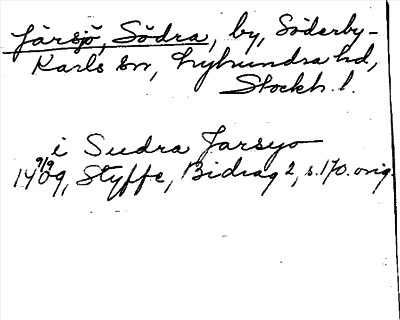 Järsjö, Södra, by, Söderby-
Karls sn, Lyhundra hd,
Stockh. l.
i Sudra Jarsyo
1409 9/9, Styffe, Bidrag 2, s. 170. orig.